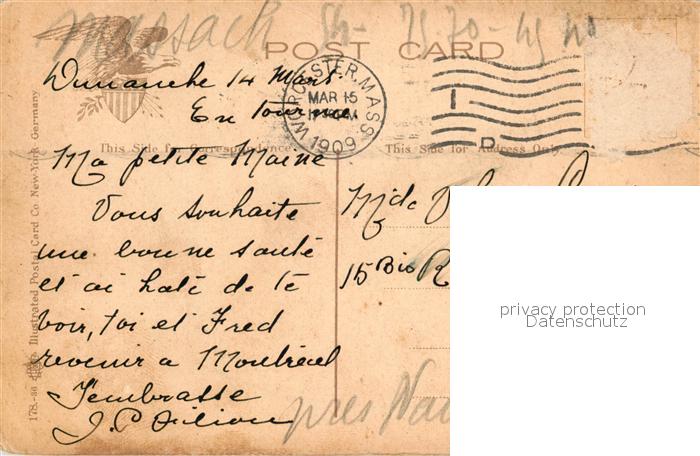 Massach
POST CARD
Dimanche 14 Mars
En tournee
WORCESTER, MASS.
MAR 15
1909
This Side for Correspondence.
This Side for Address Only.
Ma petite Maine
Vous souhaite
une bonne santé
et ai hate de te
voir, toi et Fred
revenir a Montreal
J'embrasse
J. P. Filion
Mde
15 Bis R
près Na
178-36
Illustrated Postal Card Co New-York Germany
privacy protection
Datenschutz